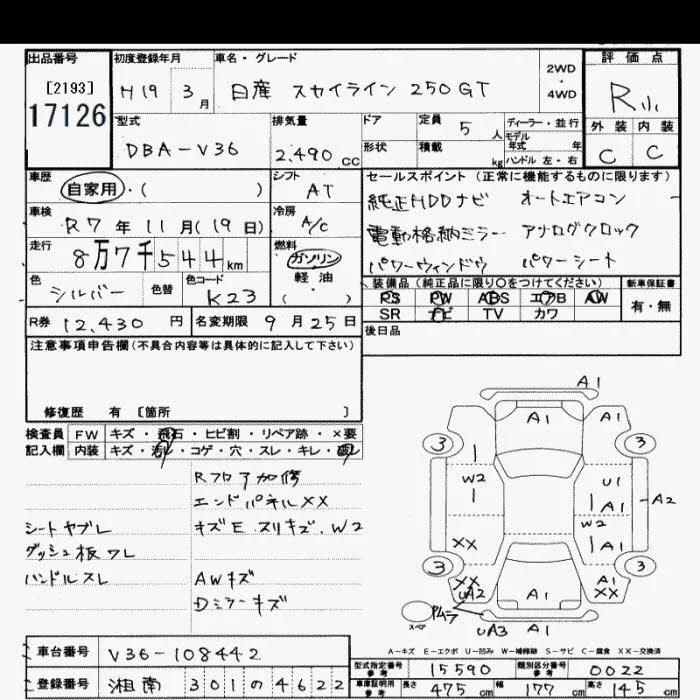 出品番号 初度登録年月 車名・グレード 評価点
[2193] 17126
H19 3月 日産 スカイライン 250GT
2WD・4WD
R小
外装 内装
C C
型式 排気量 ドア 定員 5人 ディーラー・並行
DBA-V36 2.490cc 形状 積載 kg モデル年式 年 ハンドル 左・右
車歴 シフト セールスポイント (正常に機能するものに限ります)
自家用・( ) AT
純正HDDナビ オートエアコン
車検 冷房
R7年11月(19日) A/C
電動格納ミラー アナログクロック
走行 燃料
8万7千544km ガソリン
軽油
( )
パワーウィンドウ パワーシート
色 色替 色コード
シルバー K23
装備品(純正品に限り〇をつけてください) 新車保証書
PS PW ABS エアB AW 有・無
SR ナビ TV カワ
R券 12,430円 名変期限 9月25日
後日品
注意事項申告欄(不具合内容等は具体的に記入して下さい)
修復歴 有 [箇所 ]
検査員 FW キズ・飛石・ヒビ割・リペア跡・×要
記入欄 内装 キズ・汚レ・コゲ・穴・スレ・キレ・
Rフロア加修
エンドパネルXX
シートヤブレ キズE.スリキズ.W2
ダッシュ板ワレ
ハンドルスレ AWキズ
Dミラーキズ
A1
A1 A1
3 3
W2 U1
A1 A2
W2
XX A1
3 3
XX A1
UA2 A1 XX
スペア
UA3 A1
A-キズ E-エクボ U-凹み W-補修跡 S-サビ C-腐食 XX-交換済
車台番号 V36-108442
型式指定番号 参考 15590 類別区分番号 参考 0022
登録番号 湘南 301 の 4622
車庫証明用 参考 長さ 475cm 幅 177cm 高さ 145cm